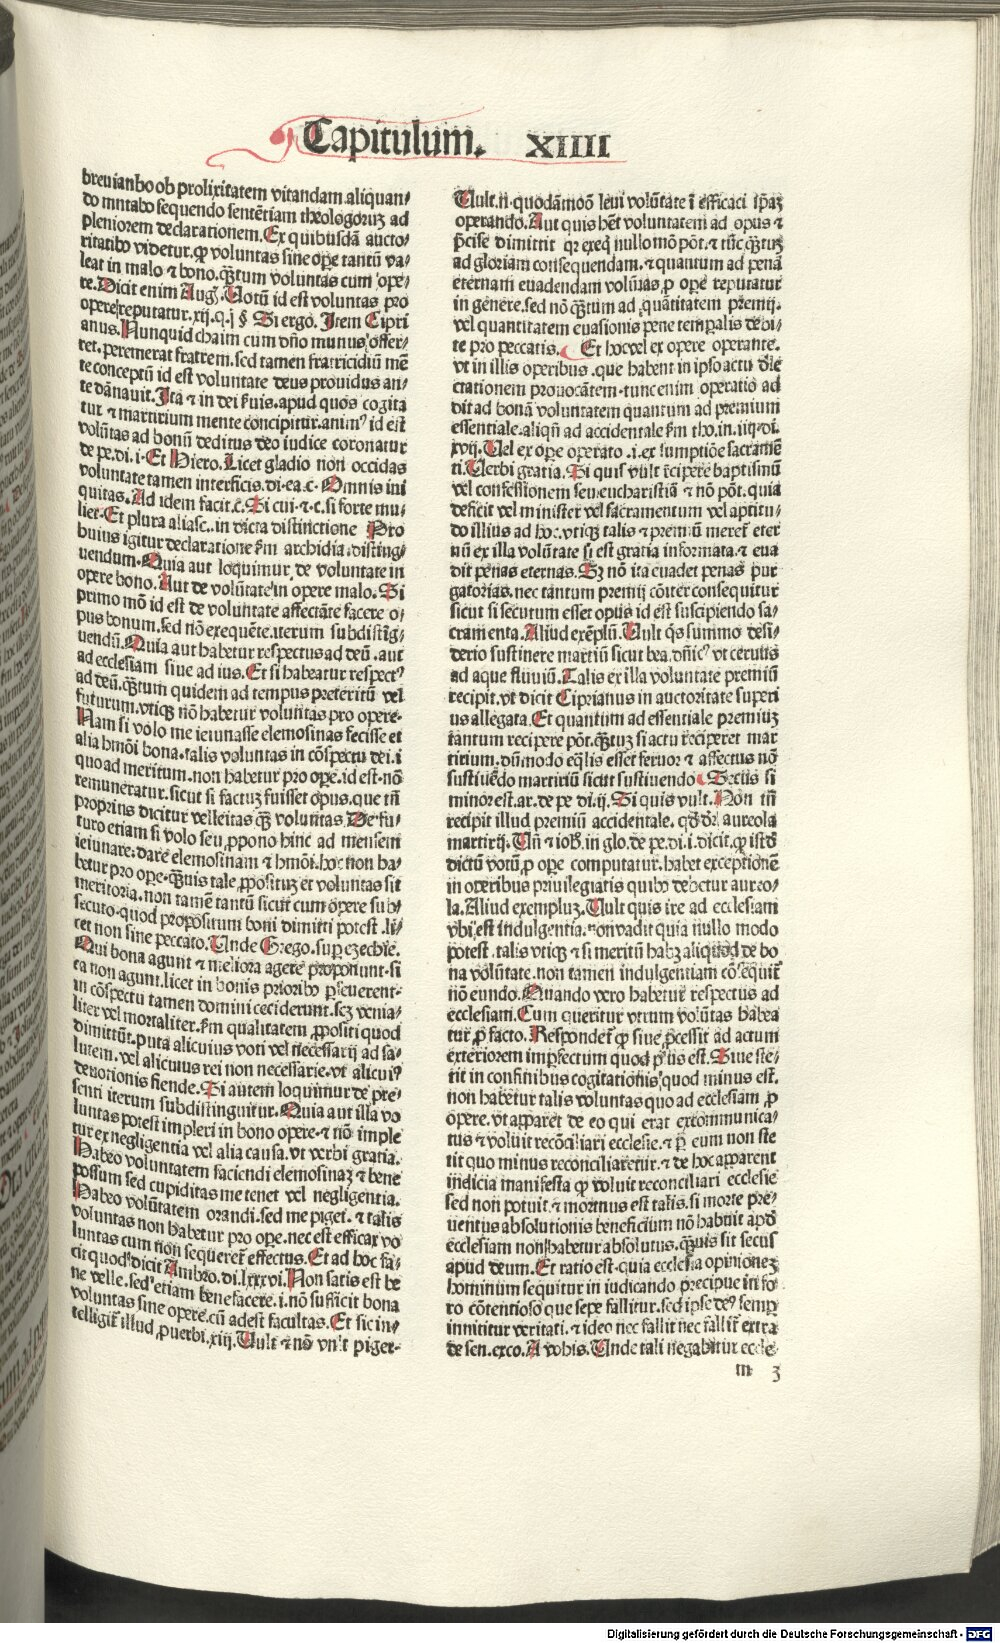 Capitulum. XIIII
breuianbo ob prolixitatem vitandam aliquan⸗
do mutabo sequendo sentẽtiam theologoruꝫ ad
pleniorem declarationem. Ex quibusdã aucto⸗
ritatibꝰ videtur. ꝙ voluntas sine ope tantũ va⸗
leat in malo ⁊ bono. ꝙ̃tum voluntas cum ope⸗
re. Dicit enim Augꝭ. Uotũ id est voluntas pro
opere reputatur. xij. q. j. § Si ergo. Item Cipri
anus. Nunquid chaim cum dño munus offer⸗
ret. peremerat fratrem. sed tamen fratricidiũ mẽ
te conceptũ id est voluntate deus prouidus an⸗
te dãnauit. Ita ⁊ in dei ẜuis. apud quos cogita
tur ⁊ martirium mente concipitur. animꝰ id est
volũtas ad bonũ deditus deo iudice coronatur
de pe. di. i. Et Hiero. Licet gladio non occidas
voluntate tamen interficis. di. ea. c. Omnis ini
quitas. Ad idem facit. c̃. Si cui. ⁊. c. si forte mu⸗
lier. Et plura alias .. in dicta distinctione Pro
huius igitur declaratione ẜm archidia. disting⸗
uendum. Quia aut loquimur de voluntate in
opere bono. Aut de volũtate in opere malo. Si
primo mõ id est de voluntate affectãte facere o⸗
pus bonum. sed nõ exequẽte. iterum subdistĩg⸗
uendũ. Quia aut habetur respectus ad deũ. aut
ad ecclesiam siue ad ius. Et si habeatur respectꝰ
ad deũ. ꝙ̃tum quidem ad tempus preteritũ vel
futurum. vtiqꝫ nõ habetur voluntas pro opere.
Nam si volo me ieiunasse elemosinas fecisse et
alia hmõi bona. talis voluntas in cõspectu dei. i
quo ad meritum. non habetur pro oꝑe. id est. nõ
remuneratur. sicut si factuꝫ fuisset opus. que tñ
proprius dicitur velleitas ꝙ̃ voluntas. De fu⸗
turo etiam si volo seu ꝓpono hinc ad mensem
ieiunare. dare elemosinam ⁊ hmõi. hoc non ha⸗
betur pro oꝑe. ꝙ̃uis tale ꝓpositũ et voluntas sit
meritoria. non tamẽ tantũ sicut cum opere sub⸗
secuto. quod propositum boni dimitti potest. li⸗
cet non sine peccato. Unde Grego. suꝑ ezechie.
Qui bona agunt ⁊ meliora agere proponunt. si
ea non agunt. licet in bonis prioribꝰ ꝑseuerent.
in cõspectu tamen domini ceciderunt. scꝫ venia⸗
liter vel mortaliter. ẜm qualitatem ꝓpositi quod
dimittũt. puta alicuius voti vel necessarij ad sa⸗
lutem. vel alicuius rei non necessarie. vt alicuiꝰ
deuotionis fiende. Si autem loquimur de pre⸗
senti iterum subdistinguitur. Quia aut illa vo
luntas potest impleri in bono opere. ⁊ nõ imple
tur ex negligentia vel alia causa. vt verbi gratia.
Habeo voluntatem faciendi elemosinaꝫ ⁊ bene
possum sed cupiditas me tenet vel negligentia.
Habeo volũtatem orandi. sed me piget. ⁊ talis
voluntas non habetur pro oꝑe. nec est efficax vo
luntas cum non sequeret̃ effectus. Et ad hoc fa⸗
cit quod dicit Ambro. di. lxxxvi. Non satis est be
ne velle. sed etiam benefacere. i. nõ sufficit bona
voluntas sine opere. cũ adest facultas. Et sic in⸗
telligit̃ illud ꝓuerbi. xiij. Uult ⁊ nõ vult piger.
Uult. n̄. quodãmõõ leui volũtate ĩ efficaci ipãꝫ
operando. Aut quis hẽt voluntatem ad opus ⁊
p̃cise dimittit qr exeq̃ nullo mõ põt. ⁊ tũc ꝙ̃tuꝫ
ad gloriam consequendam. ⁊ quantum ad penã
eternam euadendam volũtas ꝓ oꝑe reputatur
in genere. sed nõ ꝙ̃tum ad quãtitatem premij.
vel quantitatem euasionis pene temꝑalis debi⸗
te pro peccatis. Et hoc vel ex opere operante.
vt in illis operibus. que habent in ipso actu dile
ctationem prouocãtem. tunc enim operatio ad
dit ad bonã voluntatem quantum ad premium
essentiale. aliqñ ad accidentale ẜm tho. in. iiij. di.
xvij. Uel ex oꝑe operato. i. ex sumptiõe sacramẽ
ti. Uerbi gratia. Si quis vult recipere baptismũ
vel confessionem seu eucharistiã ⁊ nõ põt. quia
deficit vel minister vel sacramentum vel aptitu⸗
do illius ad hoc. vtiqꝫ talis ⁊ premiũ meret̃ eter
nũ ex illa volũtate si est gratia informata. ⁊ eua
dit penas eternas. Sꝫ nõ ita euadet penas pur
gatorias. nec tantum premij cõiter consequitur
sicut si secutum esset opus id est suscipiendo sa⸗
cramenta. Aliud exẽplũ. Uult qs summo desi⸗
derio sustinere martiriũ sicut bea. dñicꝰ vt ceruus
ad aque fluuiũ. Talis ex illa voluntate premiũ
recipit. vt dicit Ciprianus in auctoritate superi
us allegata. Et quantum ad essentiale premiuꝫ
tantum recipere põt. ꝙ̃tuꝫ si actu reciperet mar
tirium. dũmodo eq̃lis esset feruor ⁊ affectus nõ
sustinẽdo martiriũ sicut sustinendo. Secus si
minor est. ar. de pe. di. ij. Si quis vult. Non tñ
recipit illud premiũ accidentale. qd̃ dr̃ aureola
martirij. Uñ ⁊ ioh̃. in glo. de pe. di. i. dicit. ꝙ istd̃
dictũ votũ ꝓ oꝑe computatur. habet exceptionẽ
in operibus priuilegiatis quibꝰ debetur aureo⸗
la. Aliud exempluꝫ. Uult quis ire ad ecclesiam
vbi est indulgentia. non vadit quia nullo modo
potest. talis vtiqꝫ ⁊ si meritũ habꝫ aliquod de bo
na volũtate. non tamen indulgentiam cõsequit̃
nõ eundo. Quando vero habetur respectus ad
ecclesiam. Cum queritur vtrum volũtas habea
tur ꝓ facto. Respondet̃ ꝙ siue ꝓcessit ad actum
exteriorem imperfectum quod pꝰus est. Siue ste⸗
tit in confinibus cogitationis quod minus est.
non habetur talis voluntas quo ad ecclesiam ꝓ
opere. vt apparet de eo qui erat excommunica⸗
tus ⁊ voluit recõciliari ecclesie. ⁊ ꝑ eum non ste
tit quo minus reconciliaretur. ⁊ de hoc apparent
indicia manifesta ꝙ voluit reconciliari ecclesie
sed non potuit. ⁊ mortuus est talis. si morte pre⸗
uentus absolutionis beneficium nõ habuit apd̃
ecclesiam non habetur absolutus. ꝙ̃uis sit secus
apud deum. Et ratio est. quia ecclesia opinionẽ
hominum sequitur in iudicando p̃cipue in fo⸗
ro cõtentioso que sepe fallitur. sed ipse deꝰ semꝑ
innititur veritati. ⁊ ideo nec fallit nec fallit̃ extra
de sen. exco. A nobis. Unde tali negabitur eccle⸗
m 3
Digitalisierung gefördert durch die Deutsche Forschungsgemeinschaft - DFG